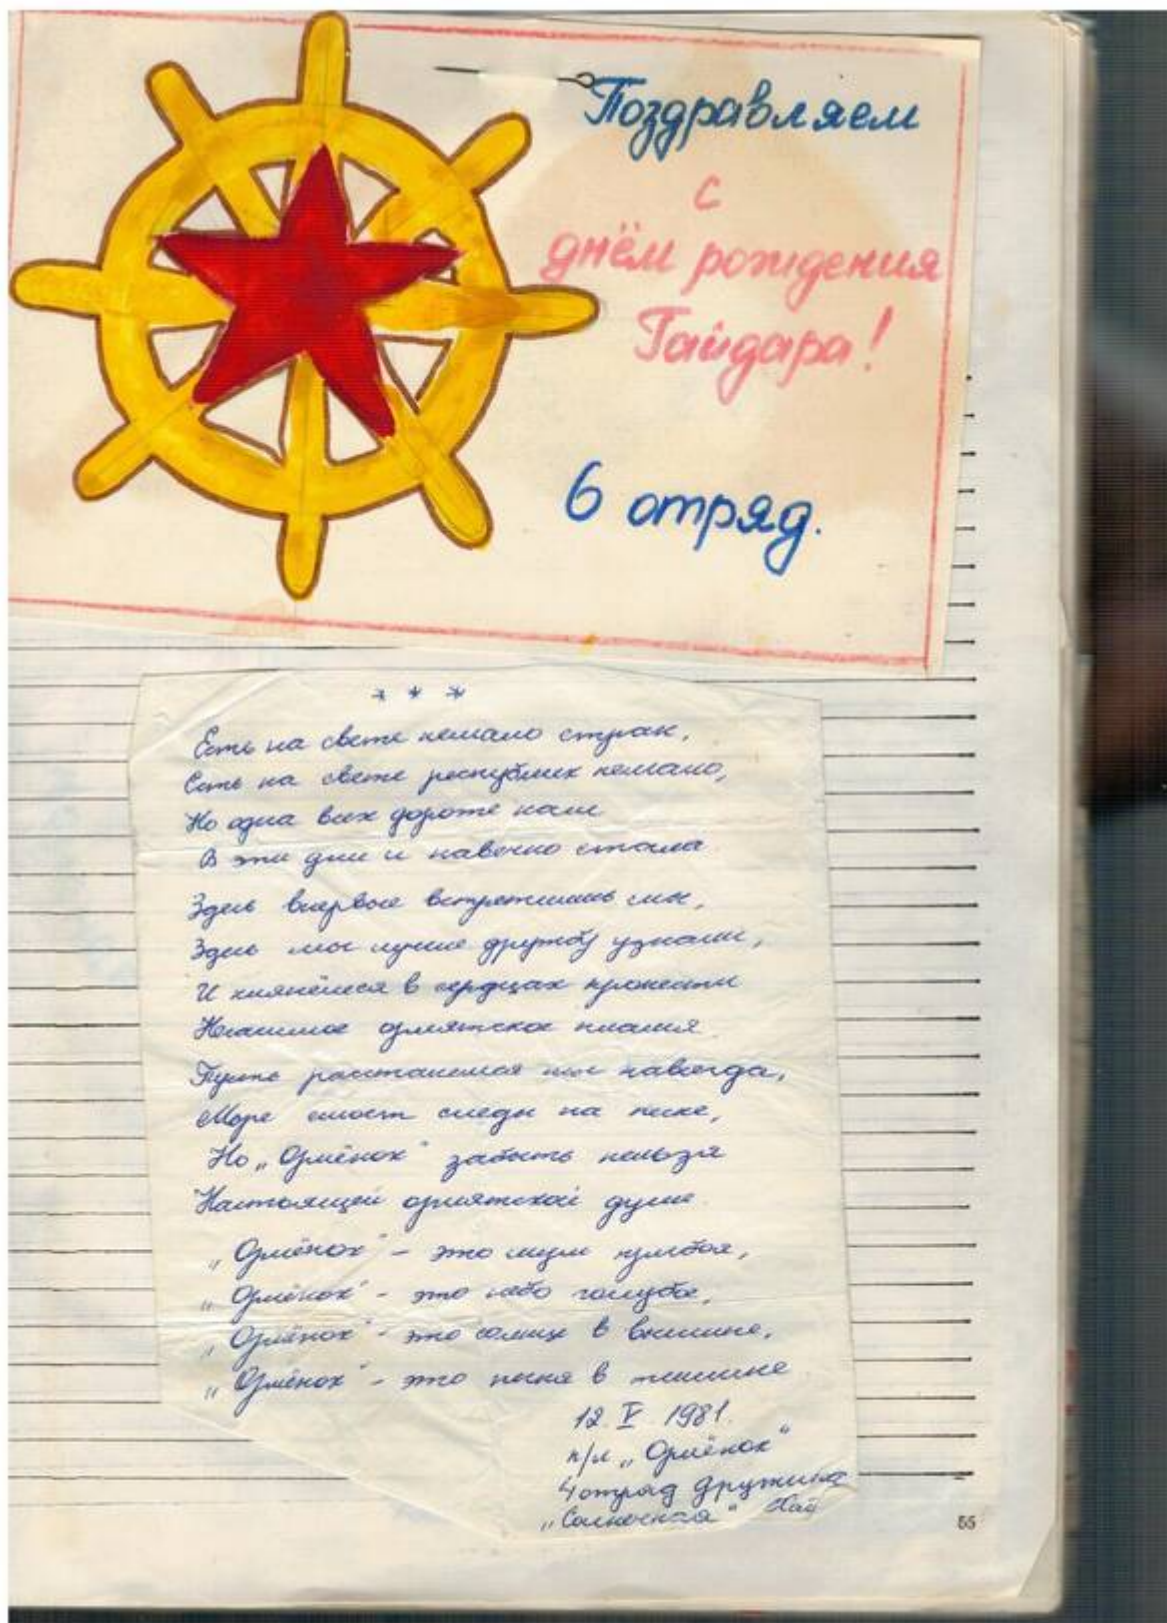 Поздравляем
с
днём рождения
Гайдара!
6 отряд.
* * *
Есть на свете немало стран,
Есть на свете республик немало,
Но одна всех дороже нам
В эти дни и навечно стала.
Здесь впервые встретились мы,
Здесь мы лучше дружбу узнали,
И клянёмся в сердцах пронести
Негасимое орлятское пламя.
Пусть расстанемся мы навсегда,
Море смоет следы на песке,
Но „Орлёнок“ забыть нельзя
Настоящей орлятской душе.
„Орлёнок“ – это шум прибоя,
„Орлёнок“ – это небо голубое,
„Орлёнок“ – это солнце в вышине,
„Орлёнок“ – это песня в тишине
12. V 1981.
п/л „Орлёнок“
4 отряд дружина
„Солнечная“
55